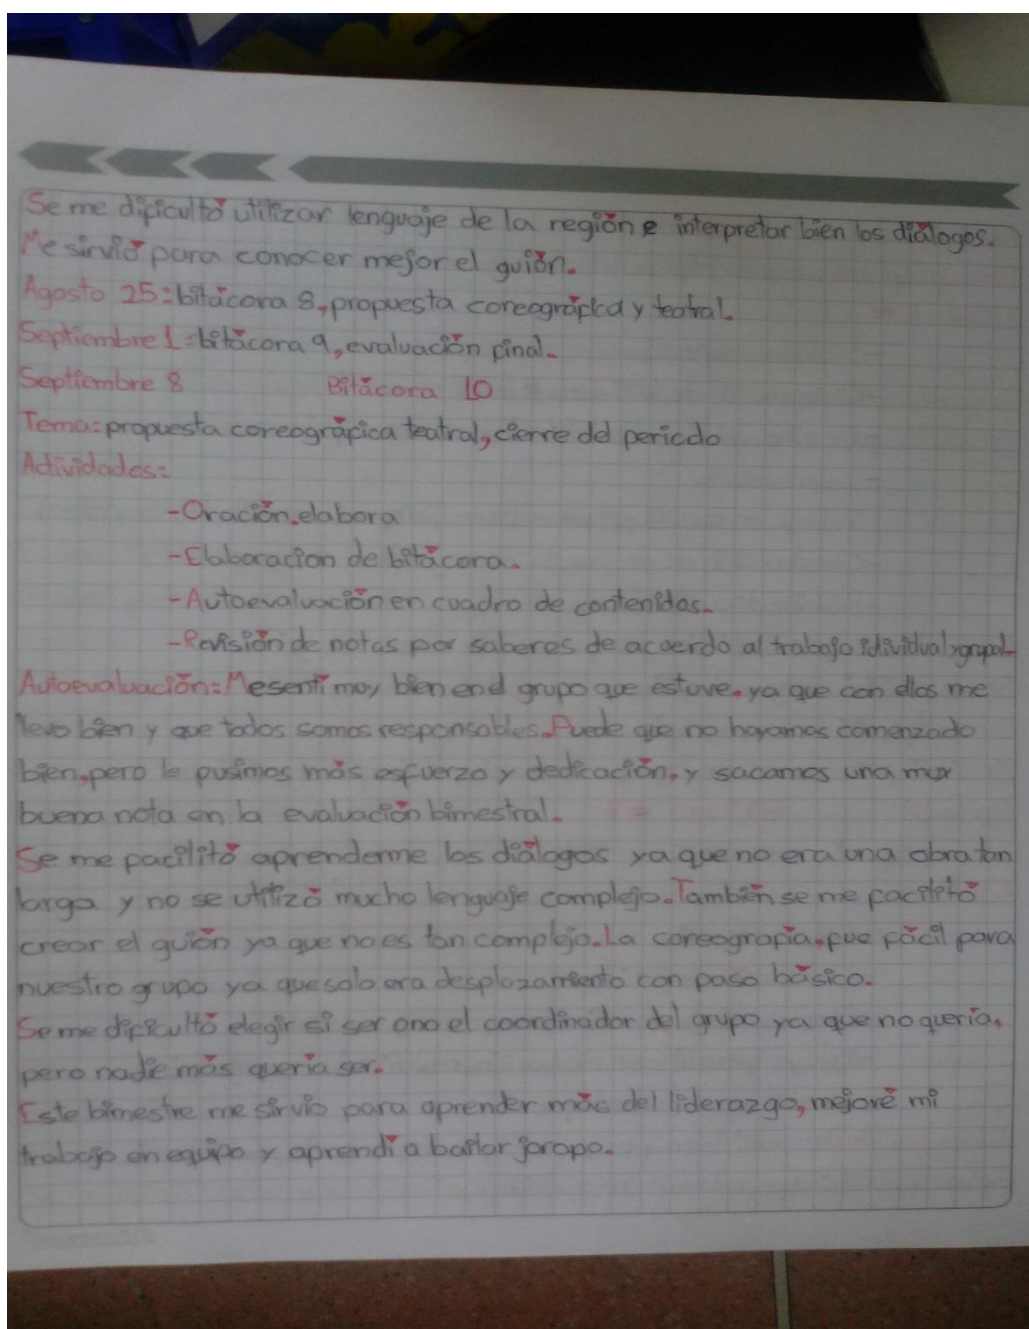 Se me dificultó utilizar lenguaje de la región e interpretar bien los diálogos.
Me sirvió para conocer mejor el guión.
Agosto 25: bitácora 8, propuesta coreográfica y teatral.
Septiembre 1: bitácora 9, evaluación final.
Septiembre 8 Bitácora 10
Tema: propuesta coreográfica teatral, cierre del periodo
Actividades:
-Oración.elabora
-Elaboracion de bitácora.
-Autoevaluación en cuadro de contenidos.
-Revisión de notas por saberes de acuerdo al trabajo idividual y grupal.
Autoevaluación: Me sentí muy bien en el grupo que estuve, ya que con ellos me
llevo bien y que todos somos responsables. Puede que no hayamos comenzado
bien, pero le pusimos más esfuerzo y dedicación, y sacamos una muy
buena nota en la evaluación bimestral.
Se me facilitó aprenderme los diálogos ya que no era una obra tan
larga y no se utilizó mucho lenguaje complejo. También se me facilitó
crear el guión ya que no es tan complejo. La coreografía, fue fácil para
nuestro grupo ya que solo era desplazamiento con paso básico.
Se me dificultó elegir si ser o no el coordinador del grupo ya que no quería,
pero nadie más quería ser.
Este bimestre me sirvió para aprender más del liderazgo, mejoré mi
trabajo en equipo y aprendí a bailar joropo.